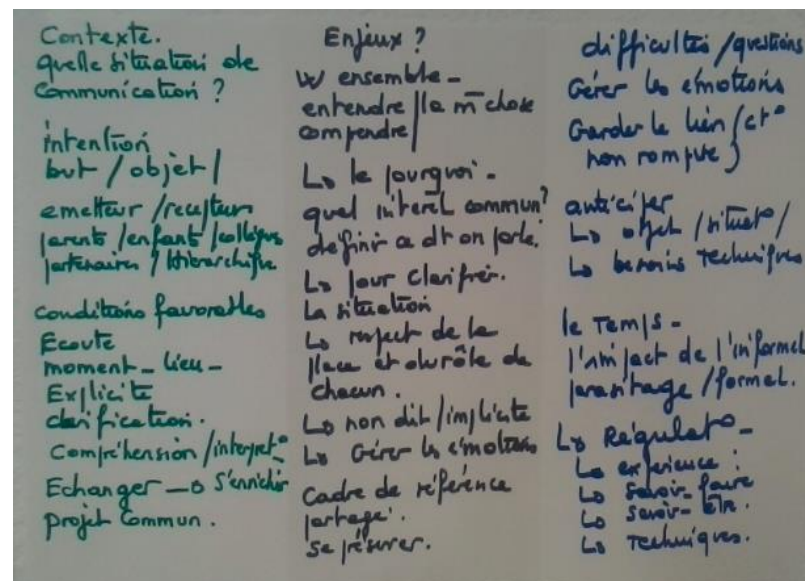 Contexte.
quelle situation de
Communication ?
intention
but / objet /
emetteur / recepteurs
parents / enfants / collègues
partenaires / hierarchique
conditions favorables
Ecoute
moment - lieu -
Explicite
clarification.
Compréhension / interpret°
Echanger → s'enrichir
projet Commun.
Enjeux ?
W ensemble -
entendre / la m̄ chose
comprendre /
↳ le pourquoi -
quel interêt commun ?
definir ce dt on parle.
↳ pour clarifier.
la situation
↳ respect de la
place et du rôle de
chacun.
↳ non dit / implicite
↳ Gérer les émotions
Cadre de référence
partagé.
se préserver.
difficultés / questions
Gérer les émotions
Garder le lien (ct°
non rompue)
anticiper
↳ objet / situat° /
↳ besoins techniques
le Temps -
l'impact de l'informel
parasitage / formel.
↳ Régulat° -
↳ expérience :
↳ savoir-faire
↳ savoir-être.
↳ Techniques.